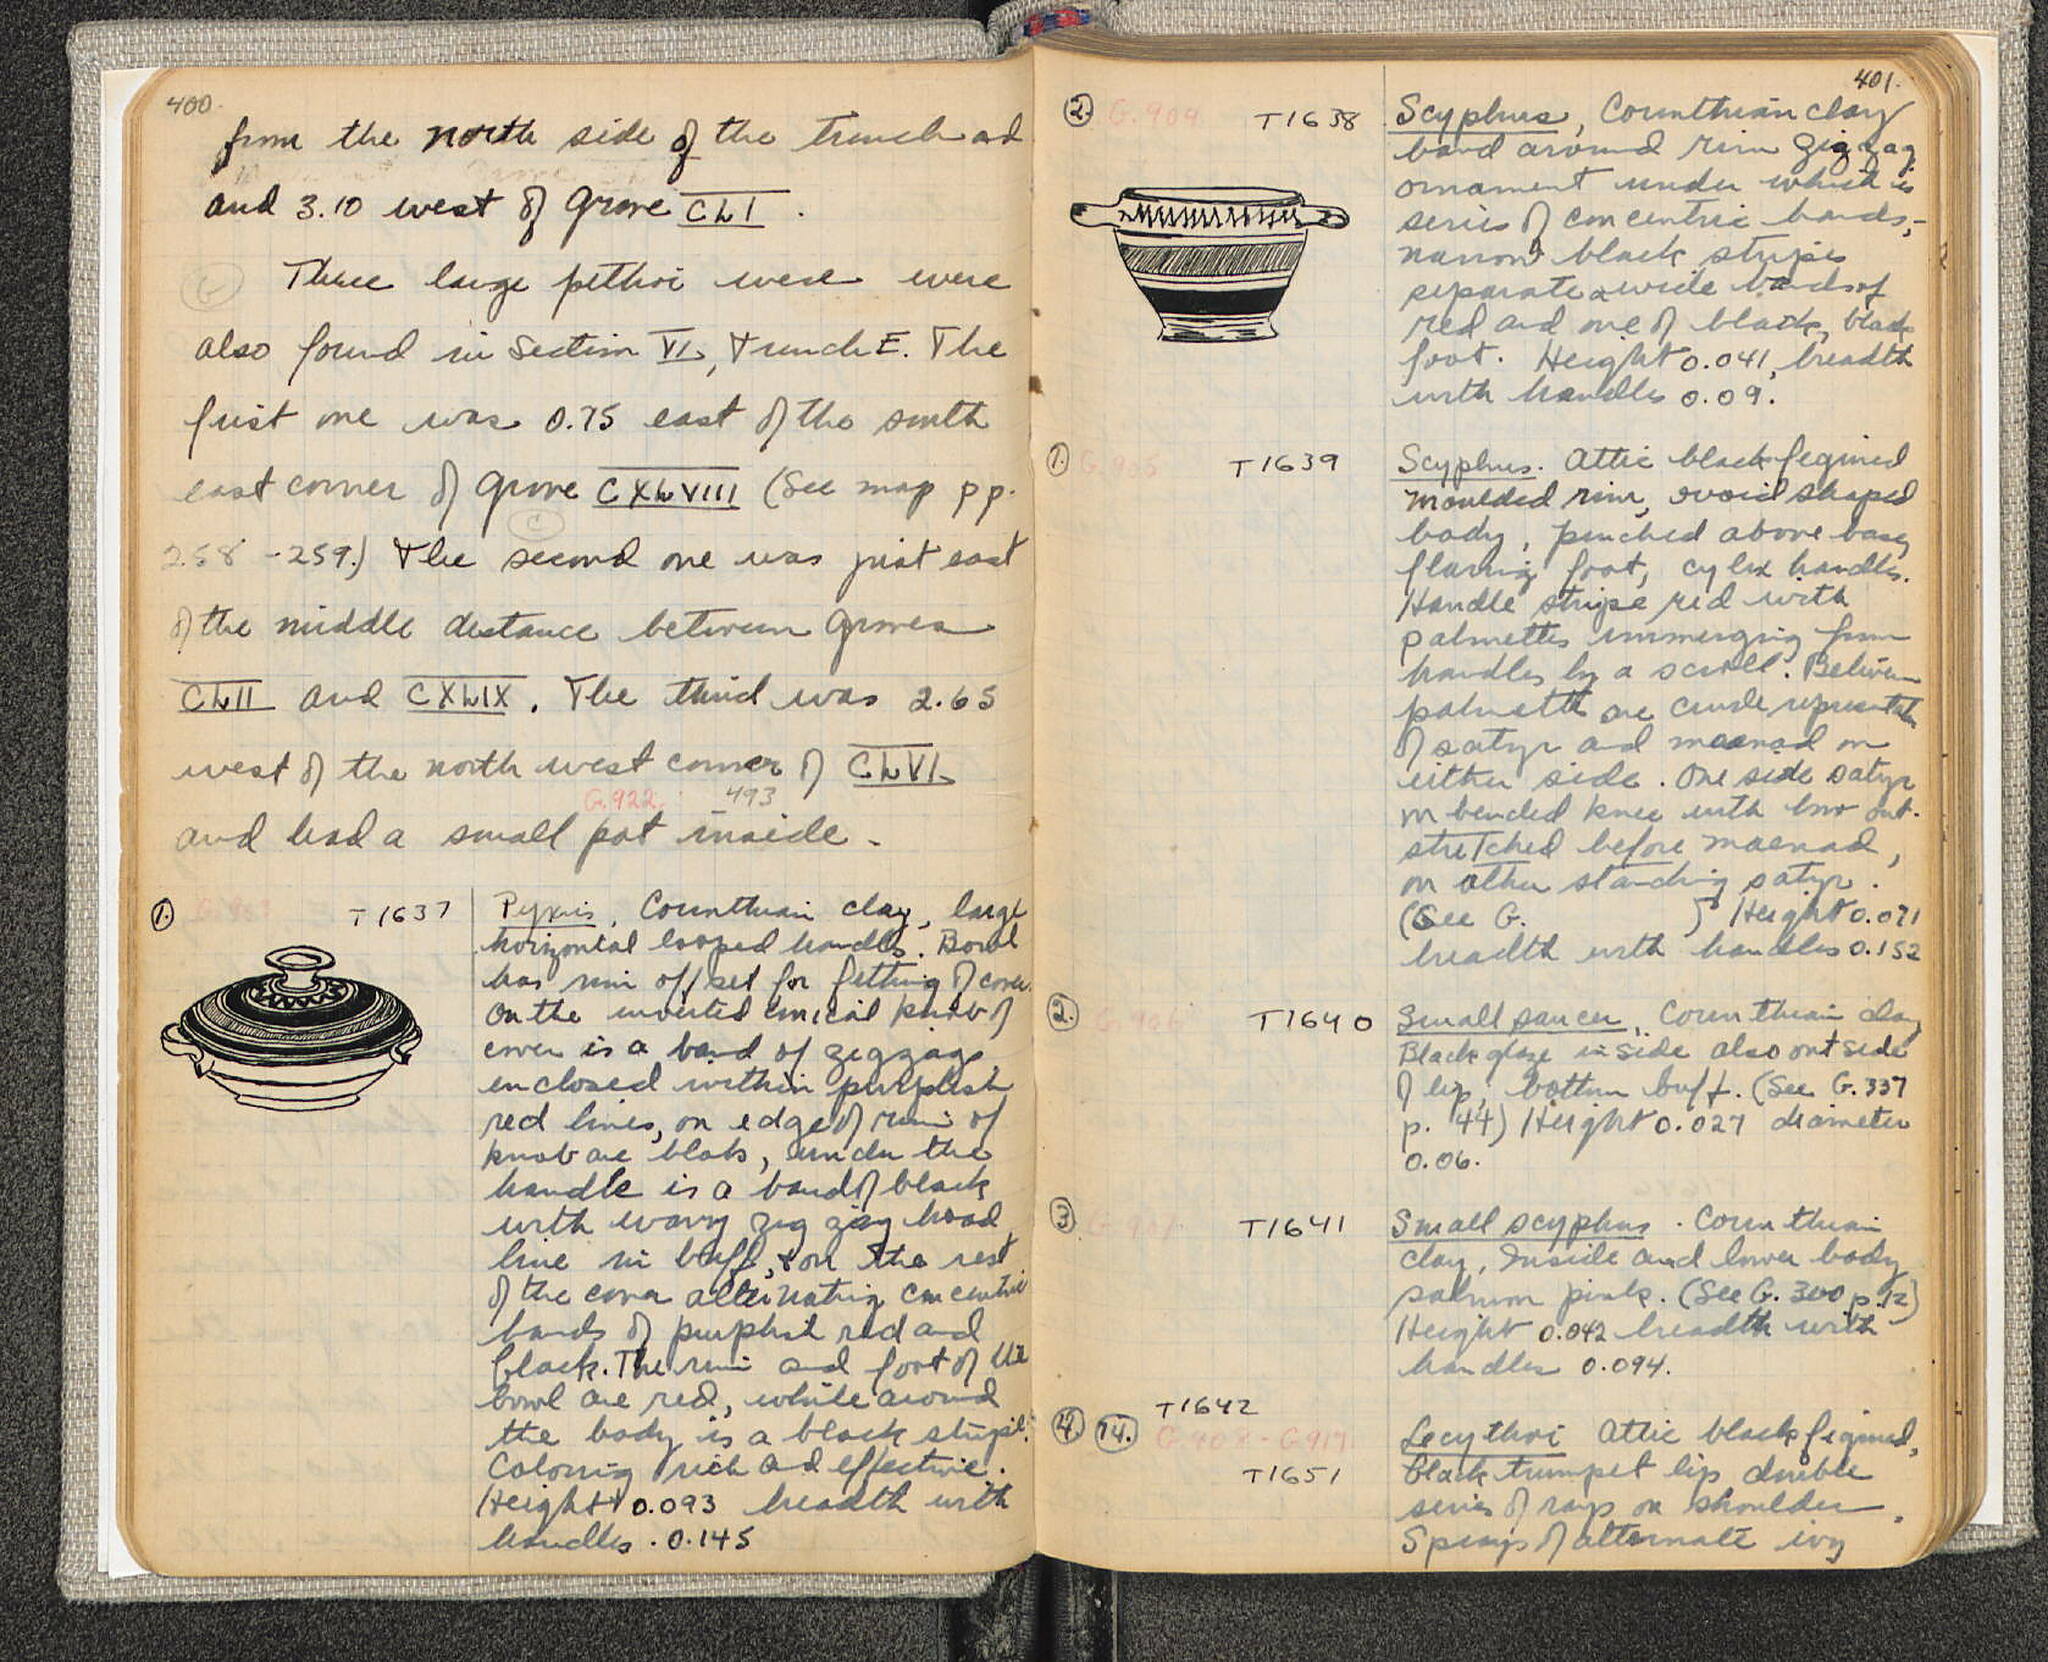 400.
from the north side of the trench and
and 3.10 west of grave CLI.
Three large pithoi were were
also found in Section VI, trench E. The
first one was 0.75 east of the south
east corner of grave CXLVIII (See map pp.
258-259.) The second one was just east
of the middle distance between graves
CLII and CXLIX. The third was 2.65
west of the north west corner of CLVI
G.922. 493
and had a small pot inside.
1. G.903 T1637
Pyxis, Corinthian clay, large
horizontal looped handles. Bowl
has rim offset for fitting of cover.
On the inverted conical knob of
cover is a band of zigzags
enclosed within purplish
red lines, on edge of rim of
knob are blobs, under the
handle is a band of black
with wavy zig zag broad
line in buff, & on the rest
of the cover alternating concentric
bands of purplish red and
black. The rim and foot of the
bowl are red, while around
the body is a black stripe.
Coloring rich and effective.
Height 0.093 breadth with
handles. 0.145
401.
2. G.904 T1638
Scyphus, Corinthian clay
band around rim zigzag
ornament under which is
series of concentric bands,-
narrow black stripes
separate 2 wide bands of
red and one of black, black
foot. Height 0.041, breadth
with handles 0.09.
1. G.905 T1639
Scyphus. Attic black figured
moulded rim, ovoid shaped
body, pinched above base,
flaring foot, cylix handles.
Handle stripe red with
palmettes immerging from
handles by a scroll. Between
palmetth are crude representatn
of satyr and maenad on
either side. One side satyr
on bended knee with bow out-
stretched before maenad,
on other standing satyr.
(See G. ) Height 0.071
breadth with handles 0.152
2. G.906 T1640
Small saucer, Corinthian clay
Black glaze inside also outside
of lip, bottom buff. (See G.337
p. 44) Height 0.027 diameter
0.06.
3 G.907 T1641
Small scyphus. Corinthian
clay, Inside and lower body
salmon pink. (See G. 300 p.12)
Height 0.042 breadth with
handles 0.094.
T1642
4. 14. G.908 - G.917
T1651
Lecythoi Attic black figured,
black trumpet lip double
series of rays on shoulder.
Sprays of alternate ivy